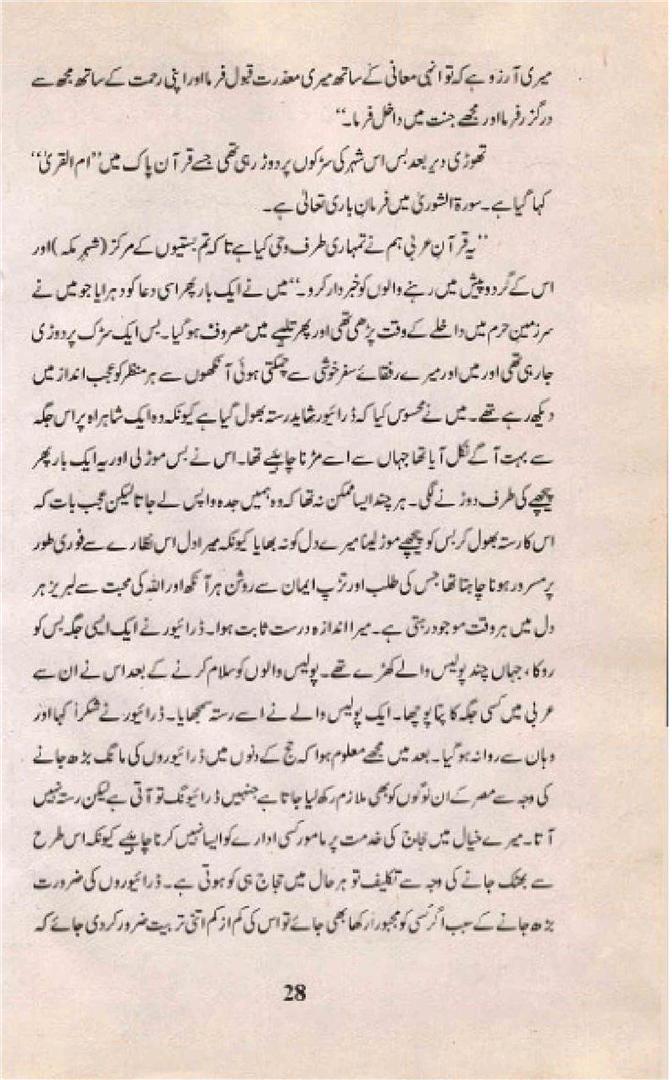 میری آرزو ہے کہ تو انہی معانی کے ساتھ میری معذرت قبول فرما اور اپنی رحمت کے ساتھ مجھ سے
درگزر فرما اور مجھے جنت میں داخل فرما۔‘‘
تھوڑی دیر بعد بس اس شہر کی سڑکوں پر دوڑ رہی تھی جسے قرآن پاک میں ’’ام القریٰ‘‘
کہا گیا ہے۔ سورۃ الشوریٰ میں فرمانِ باری تعالیٰ ہے۔
’’یہ قرآنِ عربی ہم نے تمہاری طرف وحی کیا ہے تاکہ تم بستیوں کے مرکز (شہرِ مکہ) اور
اس کے گردو پیش میں رہنے والوں کو خبردار کرو۔‘‘ میں نے ایک بار پھر اسی دعا کو دہرایا جو میں نے
سرزمینِ حرم میں داخلے کے وقت پڑھی تھی اور پھر تلبیے میں مصروف ہو گیا۔ بس ایک سڑک پر دوڑی
جا رہی تھی اور میں اور میرے رفقائے سفر خوشی سے چمکتی ہوئی آنکھوں سے ہر منظر کو عجب انداز میں
دیکھ رہے تھے۔ میں نے محسوس کیا کہ ڈرائیور شاید رستہ بھول گیا ہے کیونکہ وہ ایک شاہراہ پر اس جگہ
سے بہت آگے نکل آیا تھا جہاں سے اسے مڑنا چاہیے تھا۔ اس نے بس موڑ لی اور یہ ایک بار پھر
پیچھے کی طرف دوڑنے لگی۔ ہر چند ایسا ممکن نہ تھا کہ وہ ہمیں جدہ واپس لے جاتا لیکن عجب بات کہ
اس کا رستہ بھول کر بس کو پیچھے موڑ لینا میرے دل کو نہ بھایا کیونکہ میرا دل اس نظارے سے فوری طور
پر مسرور ہونا چاہتا تھا جس کی طلب اور تڑپ ایمان سے روشن ہر آنکھ اور اللہ کی محبت سے لبریز ہر
دل میں ہر وقت موجود رہتی ہے۔ میرا اندازہ درست ثابت ہوا۔ ڈرائیور نے ایک ایسی جگہ بس کو
روکا، جہاں چند پولیس والے کھڑے تھے۔ پولیس والوں کو سلام کرنے کے بعد اس نے ان سے
عربی میں کسی جگہ کا پتا پوچھا۔ ایک پولیس والے نے اسے رستہ سمجھایا۔ ڈرائیور نے شکراً کہا اور
وہاں سے روانہ ہو گیا۔ بعد میں مجھے معلوم ہوا کہ حج کے دنوں میں ڈرائیوروں کی مانگ بڑھ جانے
کی وجہ سے مصر کے ان لوگوں کو بھی ملازم رکھ لیا جاتا ہے جنہیں ڈرائیونگ تو آتی ہے لیکن رستہ نہیں
آتا۔ میرے خیال میں حجاج کی خدمت پر مامور کسی ادارے کو ایسا نہیں کرنا چاہیے کیونکہ اس طرح
سے بھٹک جانے کی وجہ سے تکلیف تو ہر حال میں حجاج ہی کو ہوتی ہے۔ ڈرائیوروں کی ضرورت
بڑھ جانے کے سبب اگر کسی کو مجبوراً رکھا بھی جائے تو اس کی کم از کم اتنی تربیت ضرور کر دی جائے کہ
28